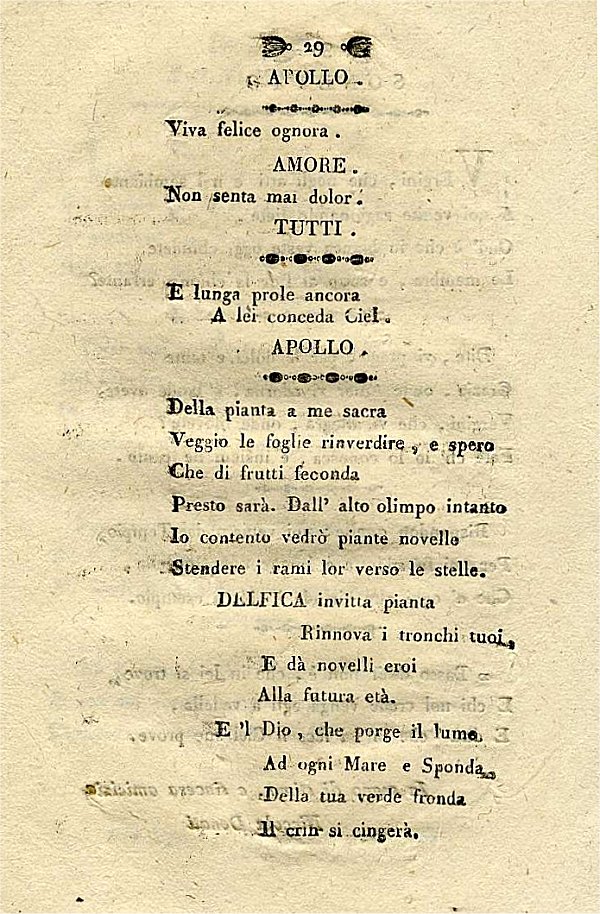 29
APOLLO.
Viva felice ognora.
AMORE.
Non senta mai dolor.
TUTTI.
E lunga prole ancora
A lei conceda Ciel.
APOLLO.
Della pianta a me sacra
Veggio le foglie rinverdire, e spero
Che di frutti feconda
Presto sarà. Dall' alto olimpo intanto
Io contento vedrò piante novelle
Stendere i rami lor verso le stelle.
DELFICA invitta pianta
Rinnova i tronchi tuoi,
E dà novelli eroi
Alla futura età.
E 'l Dio, che porge il lume
Ad ogni Mare e Sponda,
Della tua verde fronda
Il crin si cingerà.